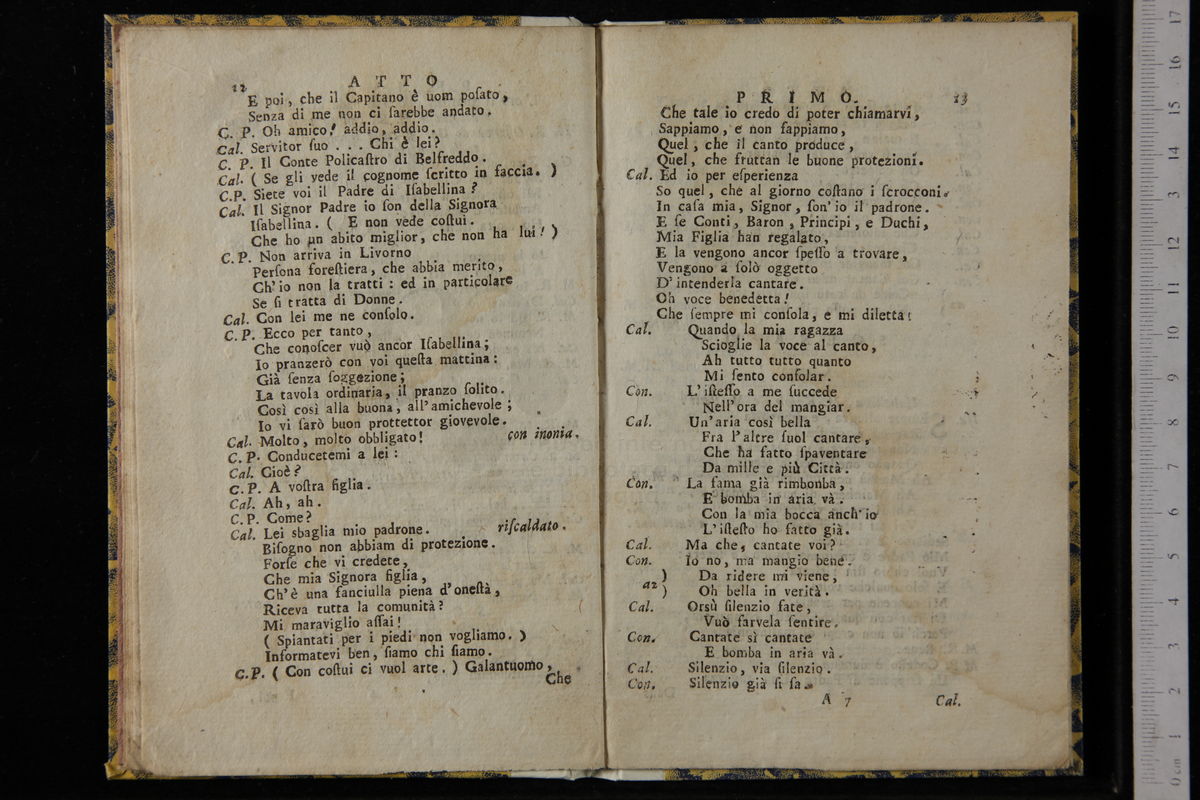 12
A T T O
E poi, che il Capitano è uom poſato,
Senza di me non ci ſarebbe andato.
C. P. Oh amico! addio, addio.
Cal. Servitor ſuo . . . Chi è lei?
C. P. Il Conte Policaſtro di Belfreddo.
Cal. ( Se gli vede il cognome ſcritto in faccia. )
C.P. Siete voi il Padre di Iſabellina?
Cal. Il Signor Padre io ſon della Signora
Iſabellina. ( E non vede coſtui.
Che ho un abito miglior, che non ha lui! )
C. P. Non arriva in Livorno
Perſona foreſtiera, che abbia merito,
Ch'io non la tratti: ed in particolare
Se ſi tratta di Donne.
Cal. Con lei me ne conſolo.
C. P. Ecco per tanto,
Che conoſcer vuò ancor Iſabellina;
Io pranzerò con voi queſta mattina:
Già ſenza ſoggezione;
La tavola ordinaria, il pranzo ſolito.
Così così alla buona, all'amichevole;
Io vi ſarò buon prottettor giovevole.
Cal. Molto, molto obbligato! con inonia.
C. P. Conducetemi a lei:
Cal. Cioè?
C. P. A voſtra figlia.
Cal. Ah, ah.
C. P. Come?
Cal. Lei sbaglia mio padrone. riſcaldato.
Biſogno non abbiam di protezione.
Forſe che vi credete,
Che mia Signora figlia,
Ch'è una fanciulla piena d'oneſtà,
Riceva tutta la comunità?
Mi maraviglio aſſai!
( Spiantati per i piedi non vogliamo. )
Informatevi ben, ſiamo chi ſiamo.
C.P. ( Con coſtui ci vuol arte. ) Galantuomo,
Che
P R I M O.
13
Che tale io credo di poter chiamarvi,
Sappiamo, e non ſappiamo,
Quel, che il canto produce,
Quel, che fruttan le buone protezioni.
Cal. Ed io per eſperienza
So quel, che al giorno coſtano i ſcrocconi.
In caſa mia, Signor, ſon'io il padrone.
E ſe Conti, Baron, Principi, e Duchi,
Mia Figlia han regalato,
E la vengono ancor ſpeſſo a trovare,
Vengono a ſolò oggetto
D'intenderla cantare.
Oh voce benedetta!
Che ſempre mi conſola, e mi diletta:
Cal. Quando la mia ragazza
Scioglie la voce al canto,
Ah tutto tutto quanto
Mi ſento conſolar.
Con. L'iſteſſo a me ſuccede
Nell'ora del mangiar.
Cal. Un'aria così bella
Fra l'altre ſuol cantare,
Che ha fatto ſpaventare
Da mille e più Città.
Con. La fama già rimbonba,
E bomba in aria và.
Con la mia bocca anch'io
L'iſteſto ho fatto già.
Cal. Ma che, cantate voi?
Con. Io no, ma mangio bene.
a2 ) Da ridere mi viene,
) Oh bella in verità.
Cal. Orsù ſilenzio fate,
Vuò farvela ſentire.
Con. Cantate sì cantate
E bomba in aria và.
Cal. Silenzio, via ſilenzio.
Con. Silenzio già ſi fa.
A 7
Cal.
0 cm 1 2 3 4 5 6 7 8 9 10 11 12 13 14 15 16 17